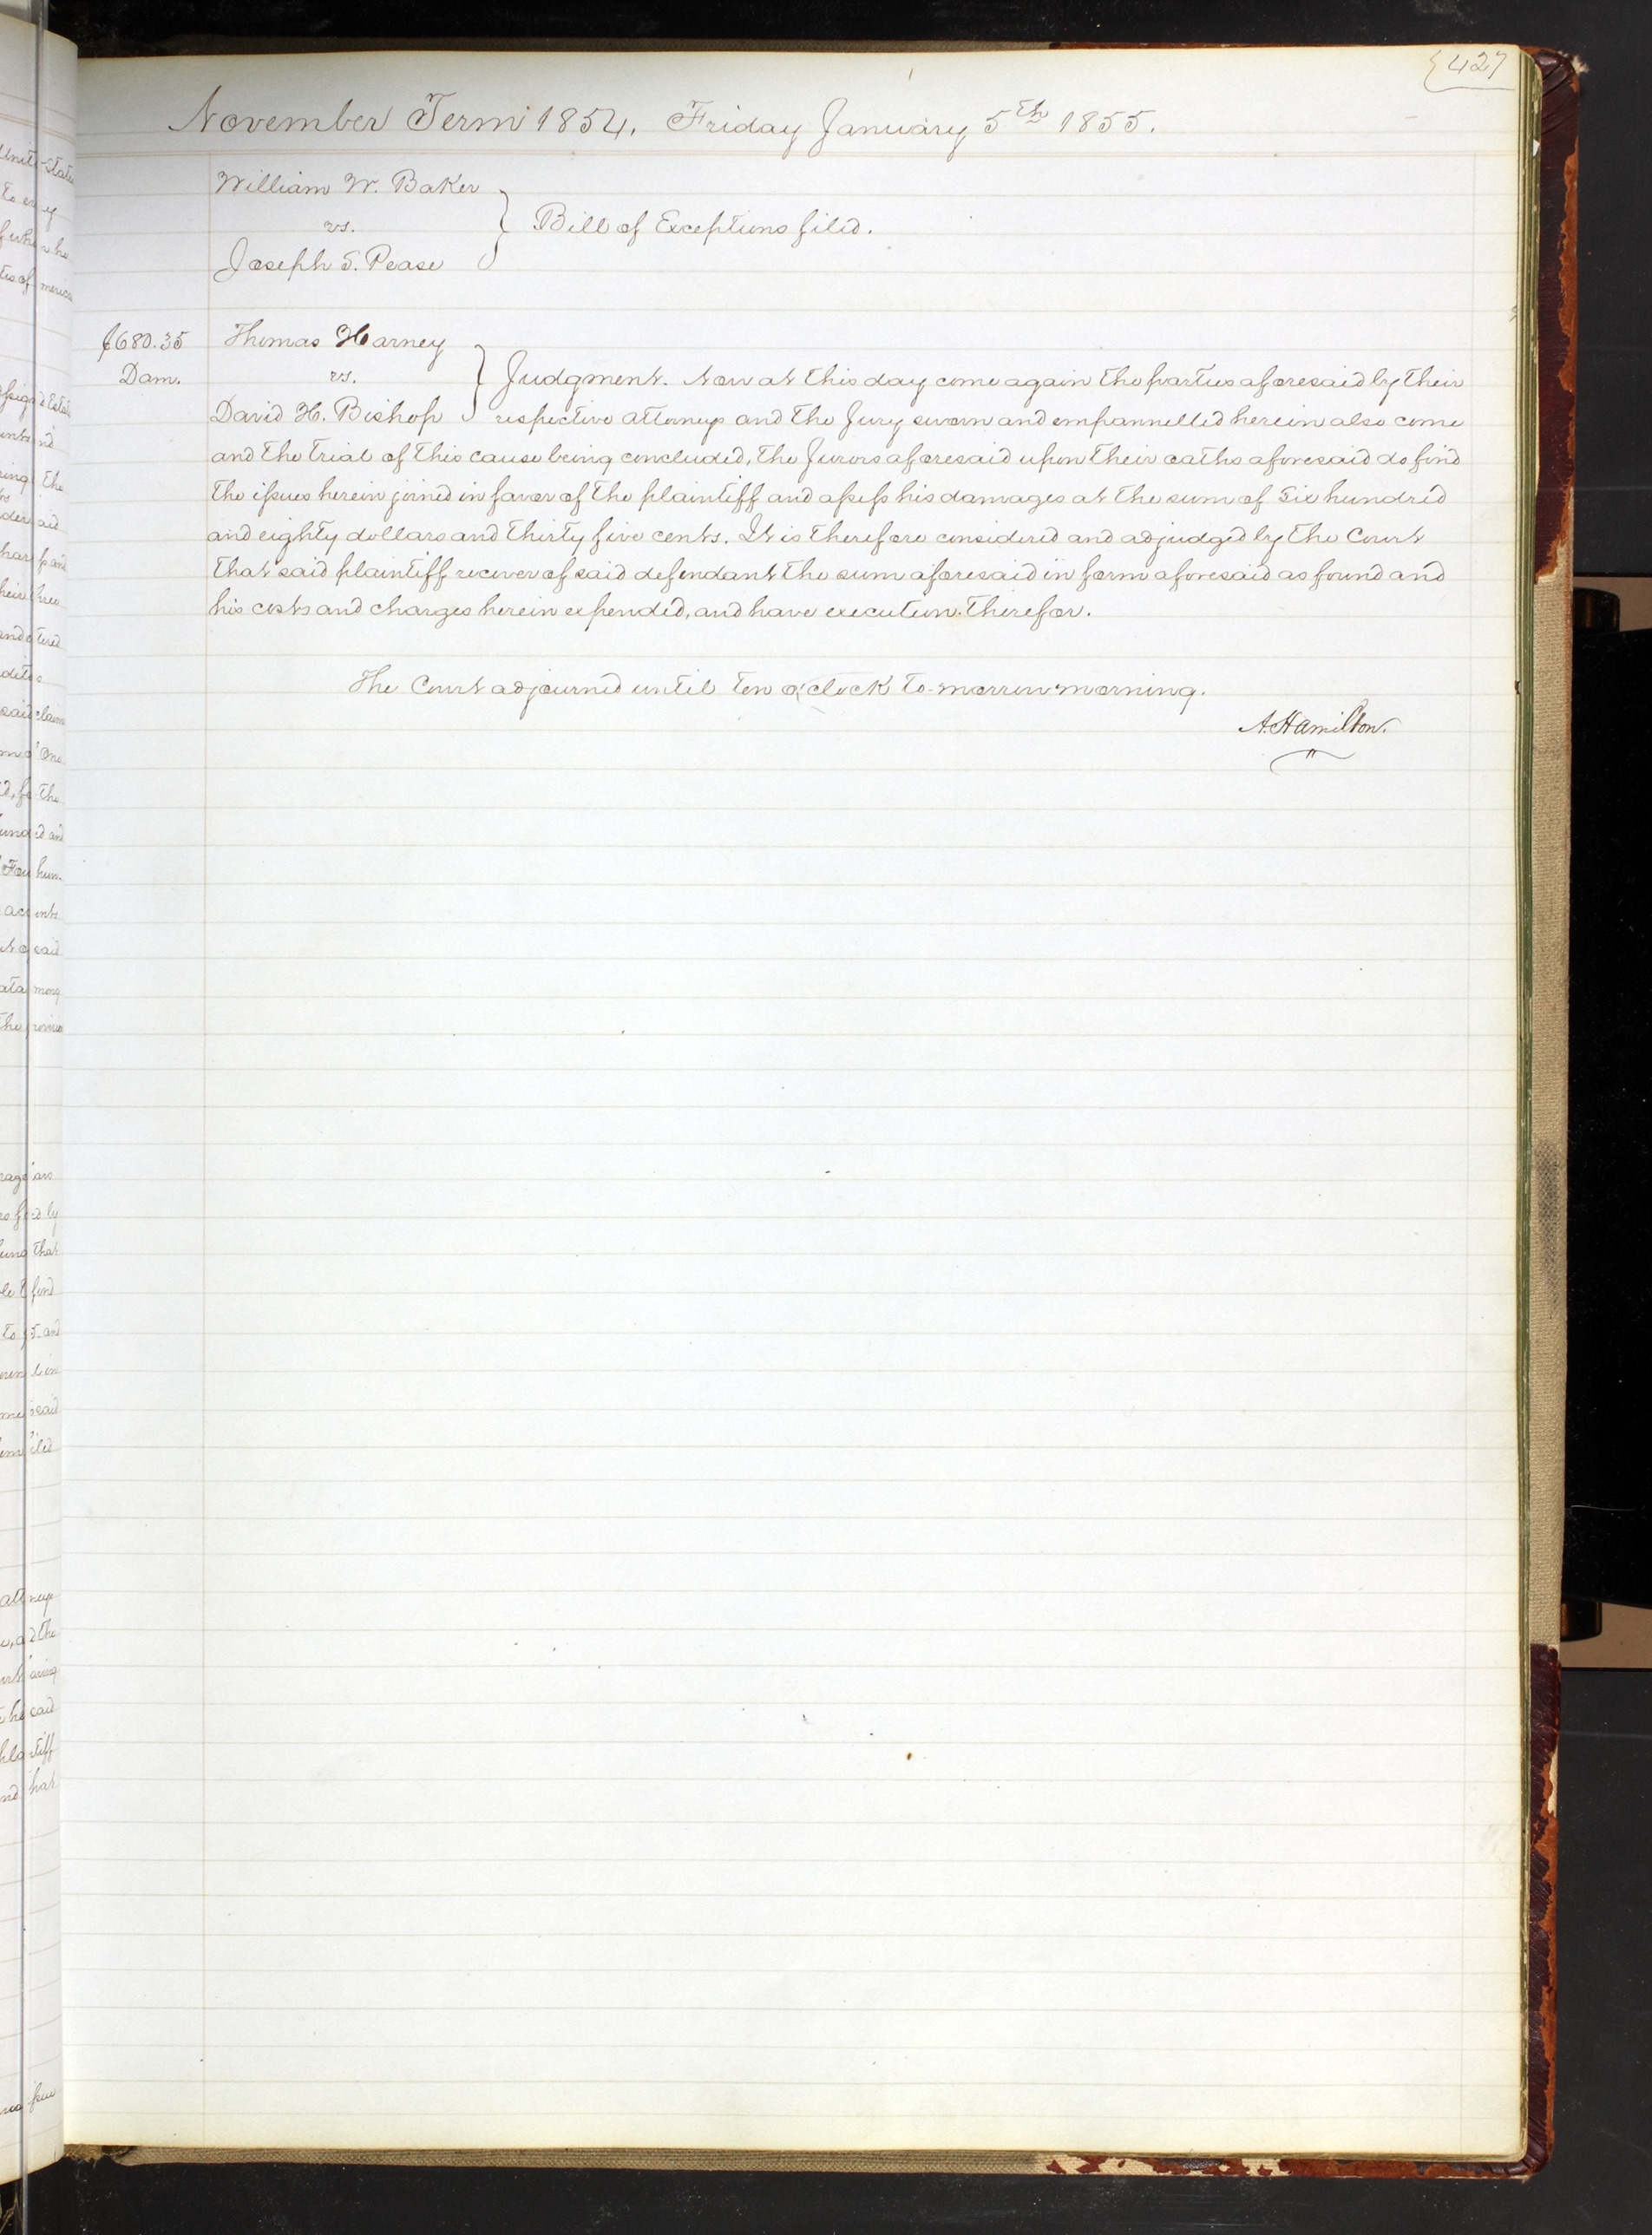 427
November Term 1854. Friday January 5th 1855.
William W. Baker
vs.
Joseph S. Pease
Bill of Exceptions filed.
$680.35
Dam.
Thomas Harney
vs.
David H. Bishop
Judgment. Now at this day come again the parties aforesaid by their
respective attorneys and the Jury sworn and empannelled herein also come
and the trial of this cause being concluded, the Jurors aforesaid upon their oaths aforesaid do find
the issues herein joined in favor of the plaintiff and assess his damages at the sum of Six hundred
and eighty dollars and thirty five cents. It is therefore considered and adjudged by the Court
that said plaintiff recover of said defendant the sum aforesaid in form aforesaid as found and
his costs and charges herein expended, and have execution therefor.
The Court adjourned until ten o'clock to-morrow morning.
A. Hamilton.